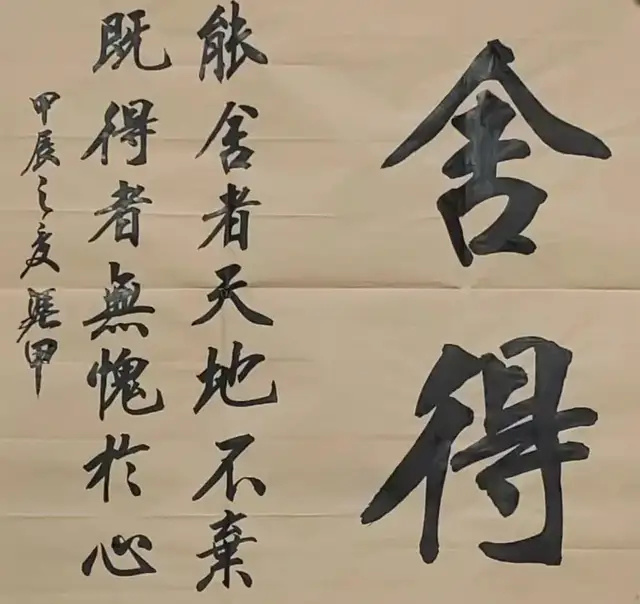 舍得
能舍者天地不棄
既得者無愧於心
甲辰之夏